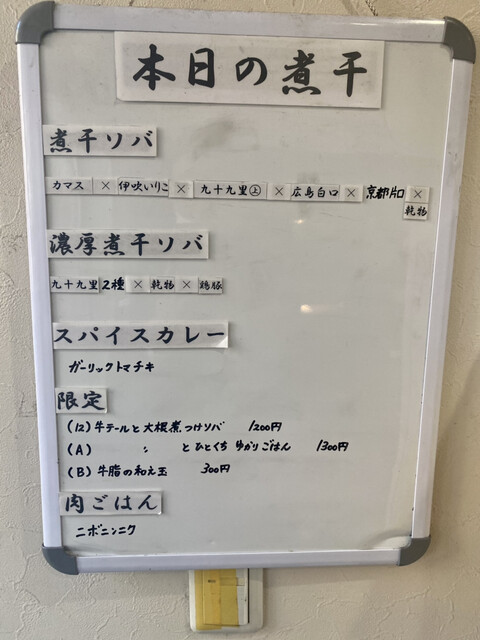 本日の煮干
煮干ソバ
カマス × 伊吹いりこ × 九十九里㊤ × 広島白口 × 京都片口 ×
乾物
濃厚煮干ソバ
九十九里2種 × 乾物 × 鶏豚
スパイスカレー
ガーリックトマチキ
限定
(12) 牛テールと大根煮つけソバ 1200円
(A) 〃 とひとくちゆかりごはん 1300円
(B) 牛脂の和え玉 300円
肉ごはん
ニボニンニク